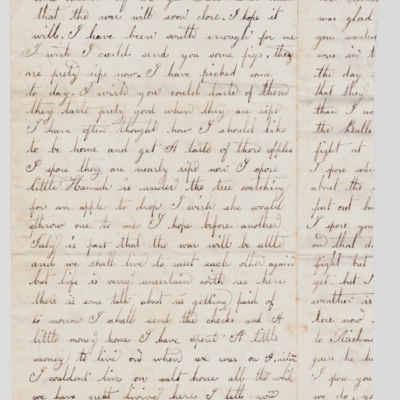 that the war will soon close. I hope it
will. I have been south enough for me
I wish I could send you some figs, they
are prety ripe now. I have picked some
to day. I wish you could taste of them
they taste prety good when they are ripe
I have often thought how I should like
to be home and get A taste of those apples
I spose they are nearly ripe now I spose
little Hannah is under the tree watching
for an apple to drop I wish she would
throw one to me I hope before another
July is past that the war will be settle
and we shall live to meet each other again
but life is verry uncertain with us here
there is some talk about us getting paid of
to morrow I shall send the checks and A
little money home I have spent A little
money to live on when we was on
I couldent live on salt horse all the while
we have great living here I tell now
was glad
you
were in
the day
that they
than I
the
fight at
I spose
about the
put out
I spose you
on that
fight but
yet, but
weather is
here now
to Richm
guess he
I spose you
we do,